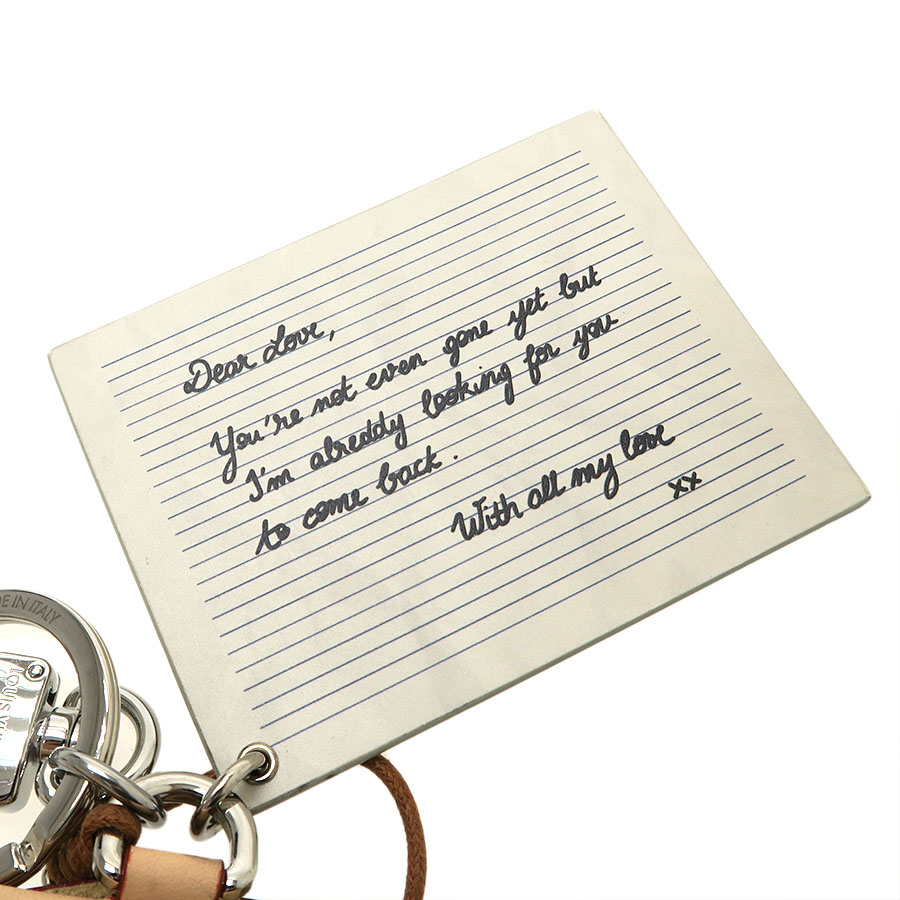 Dear Love,
You're not even gone yet but
I'm already looking for you
to come back.
With all my love
xx
DE IN ITALY
LOUIS VUI